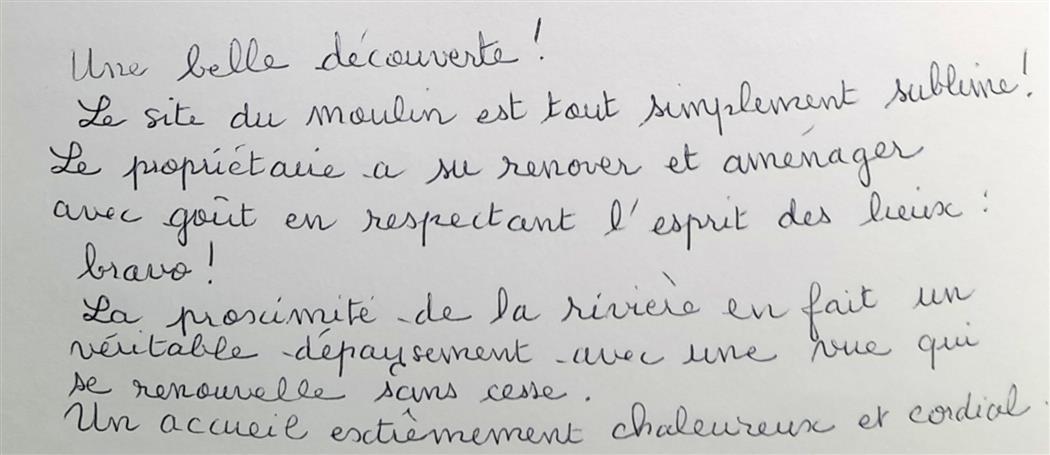 Une belle découverte !
Le site du moulin est tout simplement sublime !
Le propriétaire a su renover et aménager
avec goût en respectant l'esprit des lieux :
bravo !
La proximité de la rivière en fait un
véritable dépaysement avec une vue qui
se renouvelle sans cesse.
Un accueil extrêmement chaleureux et cordial.